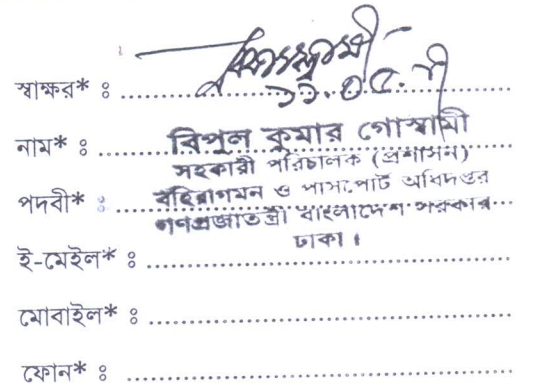 স্বাক্ষর* ঃ
১১.০৫.
নাম* ঃ বিপুল কুমার গোস্বামী
সহকারী পরিচালক (প্রশাসন)
পদবী* ঃ বহিরাগমন ও পাসপোর্ট অধিদপ্তর
গণপ্রজাতন্ত্রী বাংলাদেশ সরকার
ঢাকা।
ই-মেইল* ঃ
মোবাইল* ঃ
ফোন* ঃ